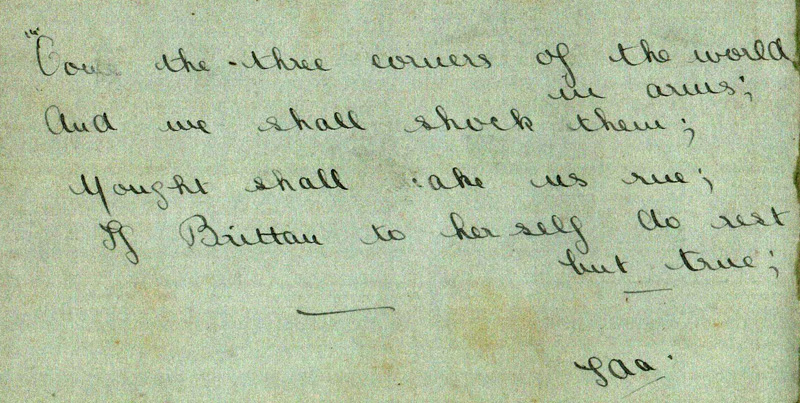 "Come the three corners of the world
in arms;
And we shall shock them;
Nought shall make us rue;
If Brittan to her self do rest
but true;